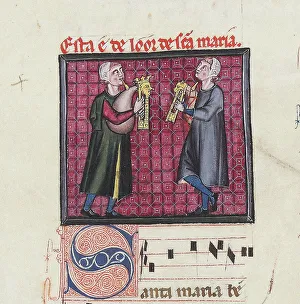 Esta e de loor de scã maria.
Santa maria be